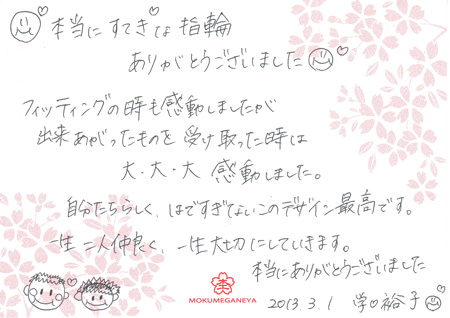 本当にすてきな指輪
ありがとうございました
フィッティングの時も感動しましたが
出来あがったものを受け取った時は
大・大・大 感動しました。
自分たちらしく、はですぎないこのデザイン最高です。
一生二人仲良く、一生大切にしていきます。
本当にありがとうございました
MOKUMEGANEYA
2013.3.1 学♡裕子